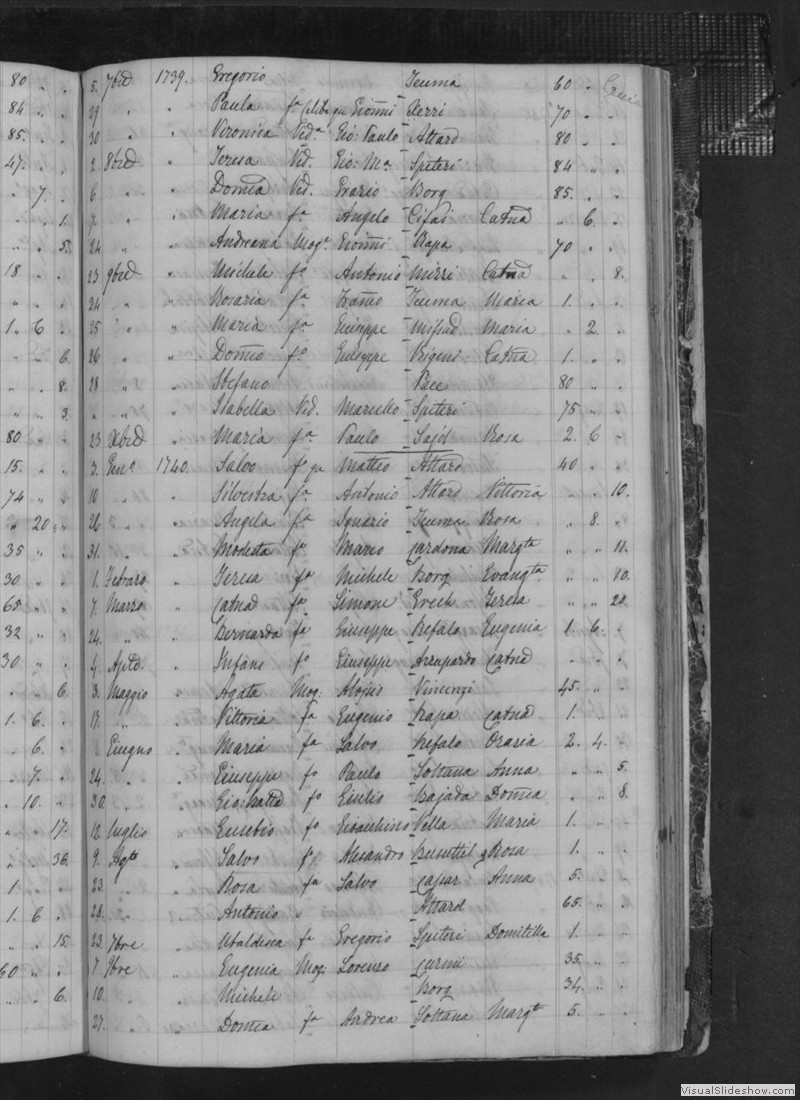 80 . . 5. 7bre 1739. Gregorio Teuma 60 .
84 . . 29 " " Paula fa Gionni Xerri 70 . .
85. . . 30 " " Veronica Vida Gio: Paulo Attard 80 . .
47. . . 2 8bre " Teresa Vid. Gio: Ma Spiteri 84 " .
. 7. . 6 " " Domca Vid. Grazio Borg 85. . .
. . 1. 7. " " Maria fa Angelo Cifai Catna " 6. .
. . 5. 24 " " Andreana Moge Gionni Rapa 70 . .
18 . . 23 9bre " Michele fo Antonio Mizzi Catna . . 8.
" . . 24 " " Rosaria fa Teuma Maria 1. . .
1. 6 . 25 " " Maria fa Giuseppe Mifsud Maria . 2. .
. . 6. 26 " " Domco fo Giuseppe Catna 1. . .
. . 8. 28 " " Stefano Pace 80 . .
" " 3. " " Isabella Vid. Spiteri 75 " .
80 . . 23 Xbre " Maria fa Paulo Sajd Rosa 2. 6 .
15. . . 3. Geno 1740. Salvo fo qu Matteo Attard 40 . .
74 . . 10 " " Silvestra fa Antonio Attard Vittoria " . 10.
" 20 . 26 " " Angela fa Ignazio Teuma Rosa " 8. .
35 " . 31. " " Modesta fa Marco Cardona Margta " " 11.
30 . . 1. Febraro " Teresa fa Michele Borg Evangta " " 10.
65. . . 7. Marzo " Catna fa Simone Grech Teresa " " 20.
32 " . 24. " " Bernarda fa Giuseppe Refalo Eugenia 1. 6. .
30 . . 4. Aple " Infans fo Giuseppe Azzupardo Catna . . .
. . 6. 3. Maggio " Agata Mog. Aloisio Vincenzi 45. . .
1. 6. . 17. " " Vittoria fa Eugenio Rapa Catna 1. . .
. 6. . Giugno " Maria fa Salvo Refalo Grazia 2. 4. .
. 7. . 24. " " Giuseppe fo Paulo Soltana Anna " " 5.
. 10. . 30. " " Gio: Batta fo Giulio Bajada Domca . . 8.
. . 17. 12. Luglio " Eusebio fo Gioachino Vella Maria 1. . .
" . 36. 9. Agto " Salvo fo Alesandro Busuttil Rosa 1. . .
1 . . 23. " " Rosa fa Salvo Capar Anna 5. . .
1. 6 . 28. " " Antonio " Attard 65. . .
" . 15. 23. 7bre " Ubaldesca fa Gregorio Spiteri Domitilla 1. . .
60 " . 7 9bre " Eugenia Mog. Lorenzo Curmi 35. . .
. . 6. 10. " " Michele Borg 34. . .
27. " " Domca fa Andrea Soltana Margta 5. . .
VisualSlideshow.com